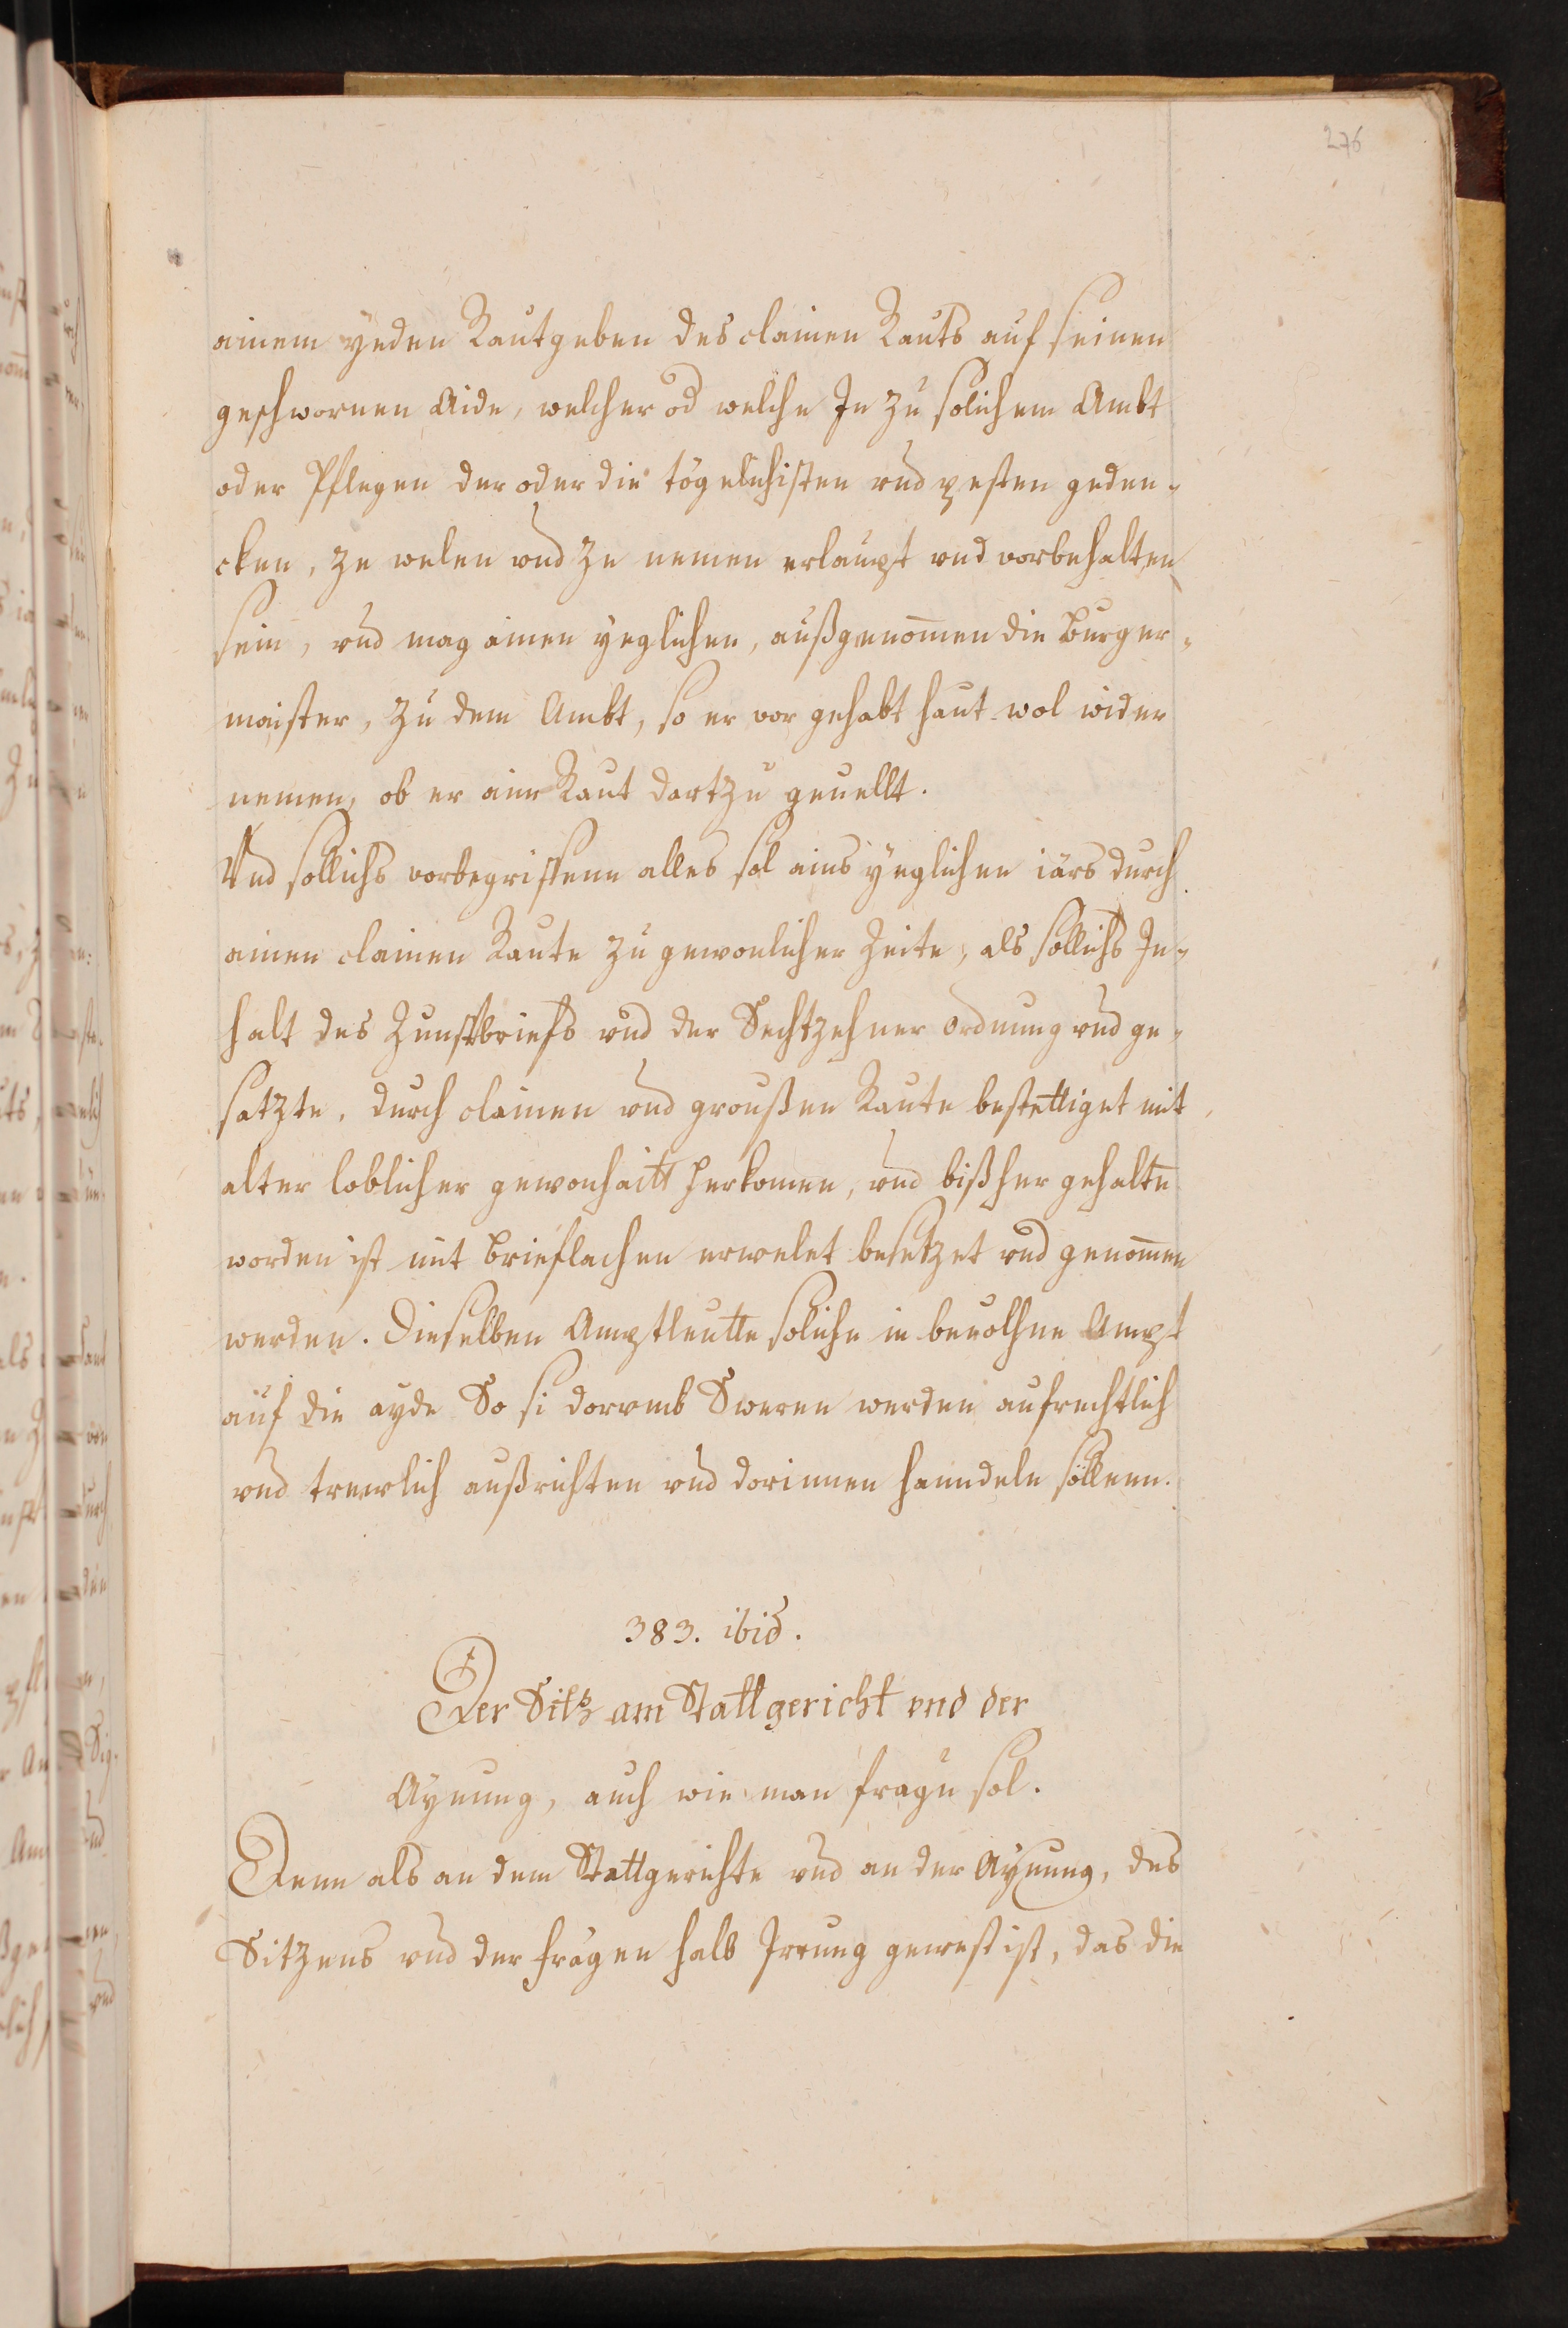 276
ainem yeden Rautgeben des clainen Rauts auf seinen
geschwornen Aide, welcher od welche In zu solichem Ambt
oder Pflegen der oder die tögelichisten vnd pesten geden-
cken, ze welen vnd ze nemen erlaupt vnd vorbehalten
sein, vnd mag ainen yeglichen, außgenom̄en die Burger-
maister, zu dem Ambt, so er vor gehabt haut wol wider
nemen, ob er aim Raut dartzu geuellt.
Vnd sollichs vorbegriffenn alles sol ains yeglichen iărs durch
ainen clainen Raute zu gewonlicher Zeite, als sollichs In-
halt des Zunftbriefs vnd der Sechtzehner ordnung vnd ge-
satzte, durch clainen vnd großen Raute bestettiget mit
alter loblicher gewonhaitt herkomen, vnd bißher gehaltn̄
worden ist mit brieflachen erwelet besetzet vnd genom̄en
werden. Dieselben Amptleutte soliche in beuolhne Ampt
auf die ayde So si dorvmb Sweren werden aufrechtlich
vnd trewlich außrichten vnd dorinnen hanndeln söllenn.
383. ibid.
Der Sitz am Stattgericht vnd der
Aynung, auch wie man fragn̄ sol.
Denn als an dem Stattgerichte vnd an der Aynung, des
Sitzens vnd der fragen halb Irrung gewest ist, das die